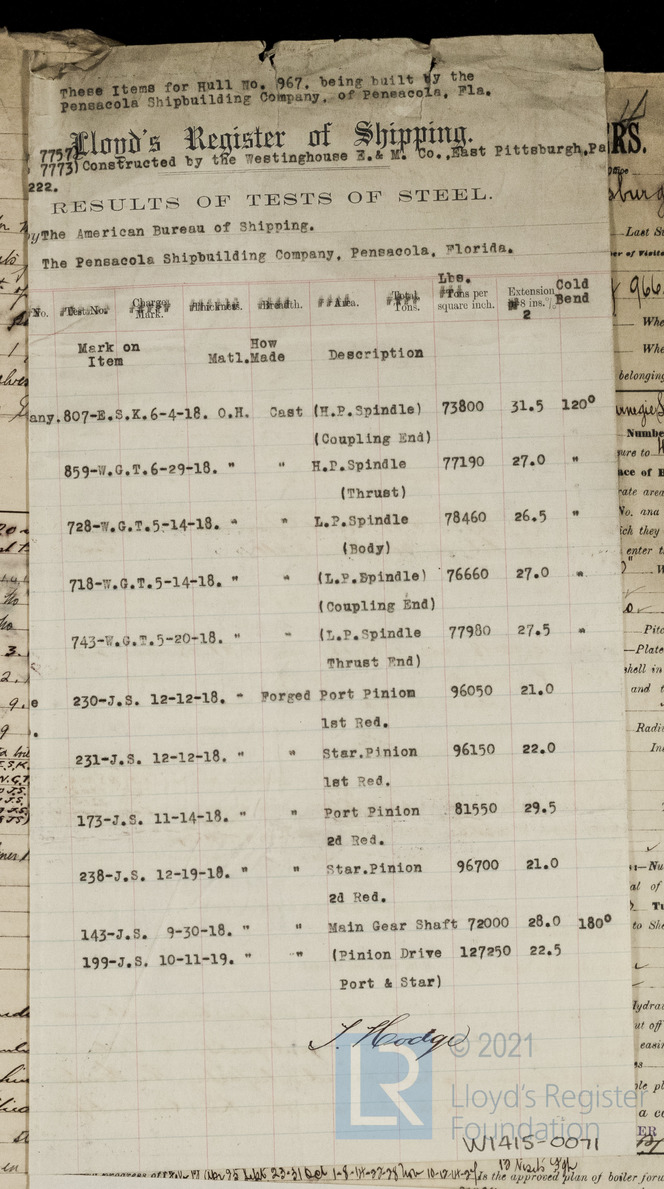 These Items for Hull No. 967. being built by the
Pensacola Shipbuilding Company, of Pensacola, Fla.
Lloyd's Register of Shipping.
7757)
7773) Constructed by the Westinghouse E.& M. Co.,East Pittsburgh,Pa
222.
RESULTS OF TESTS OF STEEL.
The American Bureau of Shipping.
The Pensacola Shipbuilding Company, Pensacola, Florida.
No. Test No. Charge Mark. Thickness. Breadth. Area. Total Tons. Lbs. Tons per square inch. Extension 8 ins. % 2 Cold Bend
Mark on Item Matl. How Made Description
any. 807-E.S.K.6-4-18. O.H. Cast (H.P.Spindle) 73800 31.5 120°
(Coupling End)
859-W.G.T.6-29-18. " " H.P.Spindle 77190 27.0 "
(Thrust)
728-W.G.T.5-14-18. " " L.P.Spindle 78460 26.5 "
(Body)
718-W.G.T.5-14-18. " " (L.P.Spindle) 76660 27.0 "
(Coupling End)
743-W.G.T.5-20-18. " " (L.P.Spindle 77980 27.5 "
Thrust End)
230-J.S. 12-12-18. " Forged Port Pinion 96050 21.0
1st Red.
231-J.S. 12-12-18. " " Star.Pinion 96150 22.0
1st Red.
173-J.S. 11-14-18. " " Port Pinion 81550 29.5
2d Red.
238-J.S. 12-19-18. " " Star.Pinion 96700 21.0
2d Red.
143-J.S. 9-30-18. " " Main Gear Shaft 72000 28.0 180°
199-J.S. 10-11-19. " " (Pinion Drive 127250 22.5
Port & Star)
J. Hodge
LR © 2021
Lloyd's Register
Foundation
W1415-0071
is the approved plan of boiler